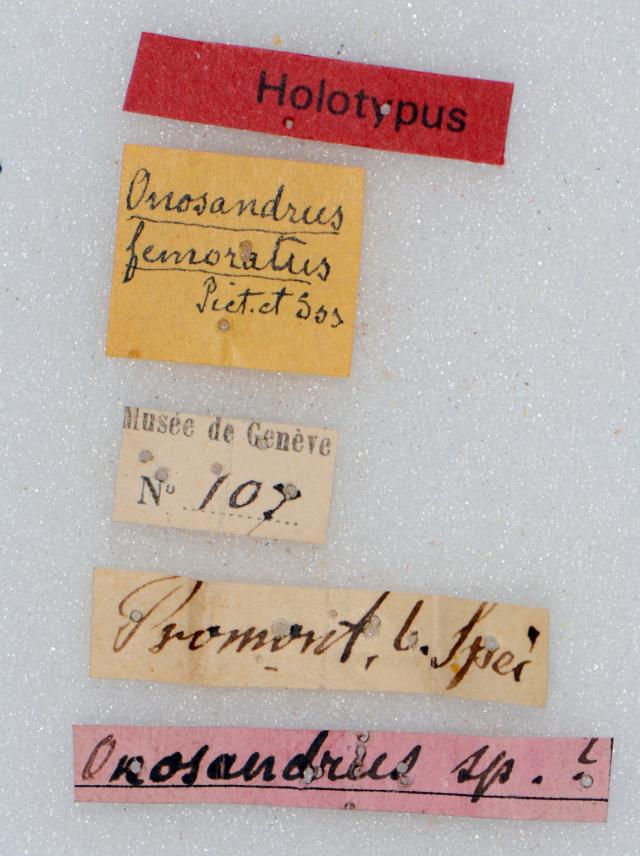 Holotypus
Onosandrus
femoratus
Pict. et Sss
Musée de Genève
N° 107
Promont, b. Spei
Onosandrus sp. ?